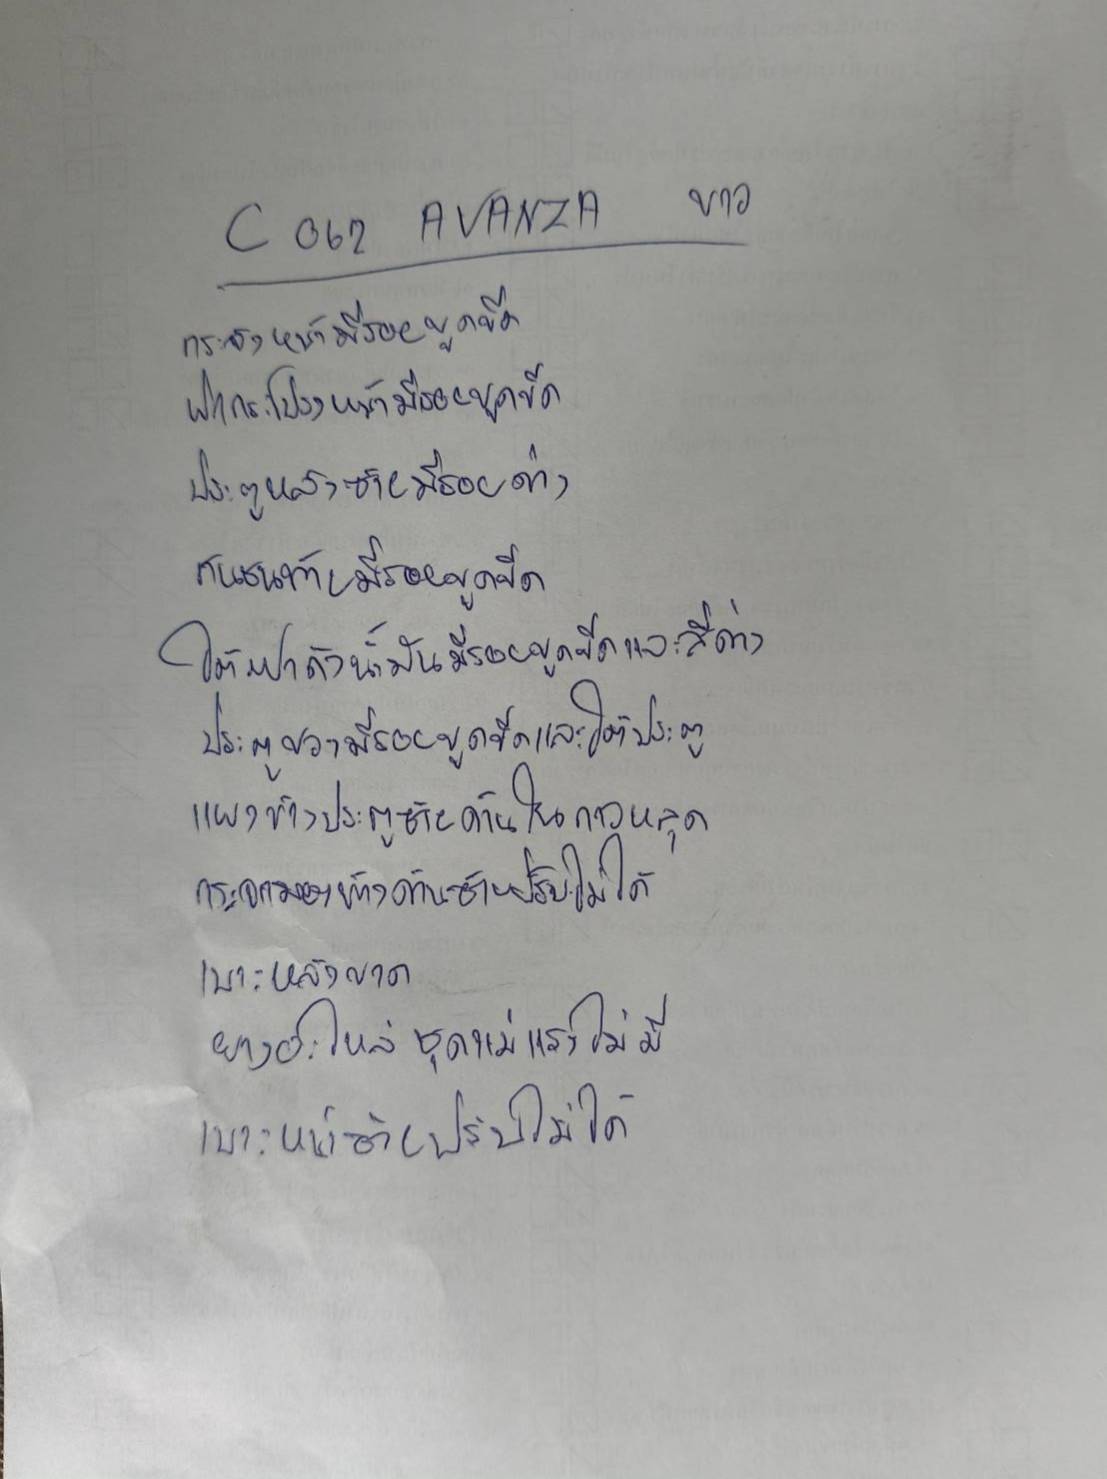 C 067 AVANZA ขาว
กระจังหน้ามีรอยขูดขีด
ฝากระโปรงหน้ามีรอยขูดขีด
ประตูหลังซ้ายมีรอยด่าง
กันชนท้ายมีรอยขูดขีด
ใต้ฝาถังน้ำมันมีรอยขูดขีดและสีด่าง
ประตูขวามีรอยขูดขีดและใต้ประตู
แผงข้างประตูซ้ายด้านในกาวหลุด
กระจกมองข้างด้านซ้ายปรับไม่ได้
เบาะหลังขาด
ยางอะไหล่ ชุดแม่แรงไม่มี
เบาะหน้าซ้ายปรับไม่ได้